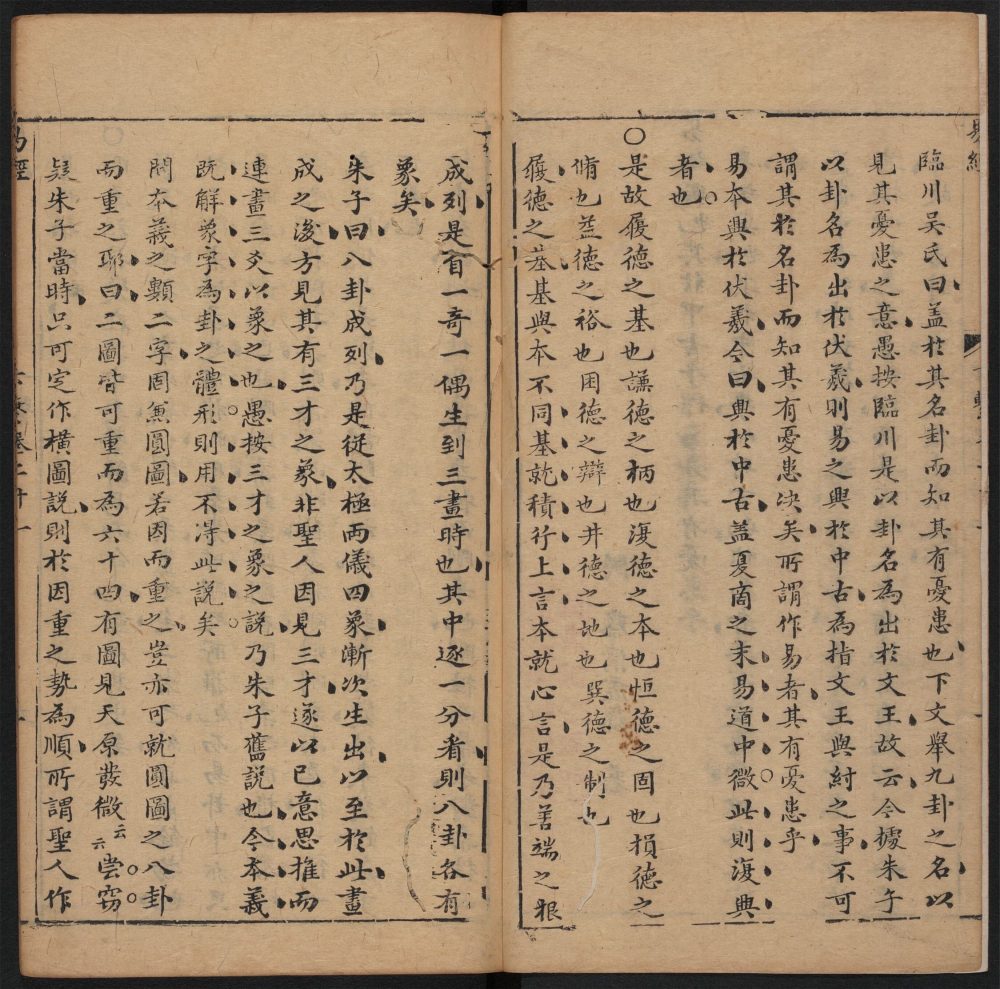 臨川吳氏曰盖於其名卦而知其有憂患也下文舉九卦之名以
見其憂患之意愚按臨川是以卦名為出於文王故云今據朱子
以卦名為出於伏羲則易之興於中古為指文王與紂之事不可
謂其於名卦而知其有憂患决矣所謂作易者其有憂患乎
易本興於伏羲今曰興於中古盖夏商之末易道中微此則復興
者也
○是故履德之基也謙德之柄也復德之本也恒德之固也損德之
脩也益德之裕也困德之辯也井德之地也巽德之制也
履德之基基與本不同基就積行上言本就心言是乃善端之根
易經
成列是自一奇一偶生到三畫時也其中逐一分看則八卦各有
象矣
朱子曰八卦成列乃是從太極兩儀四象漸次生出以至於此畫
成之後方見其有三才之象非聖人因見三才遂以己意思推而
連畫三爻以象之也○愚按三才之象之説乃朱子舊説也今本義
既解象字為卦之體形則用不淂此説矣○
問本義之類二字固兼圓圖若因而重之豈亦可就圓圖之八卦
而重之耶曰二圖皆可重而為六十四有圖見天原發微云六○嘗竊○
疑朱子當時只可定作横圖説則於因重之勢為順所謂聖人作
易經